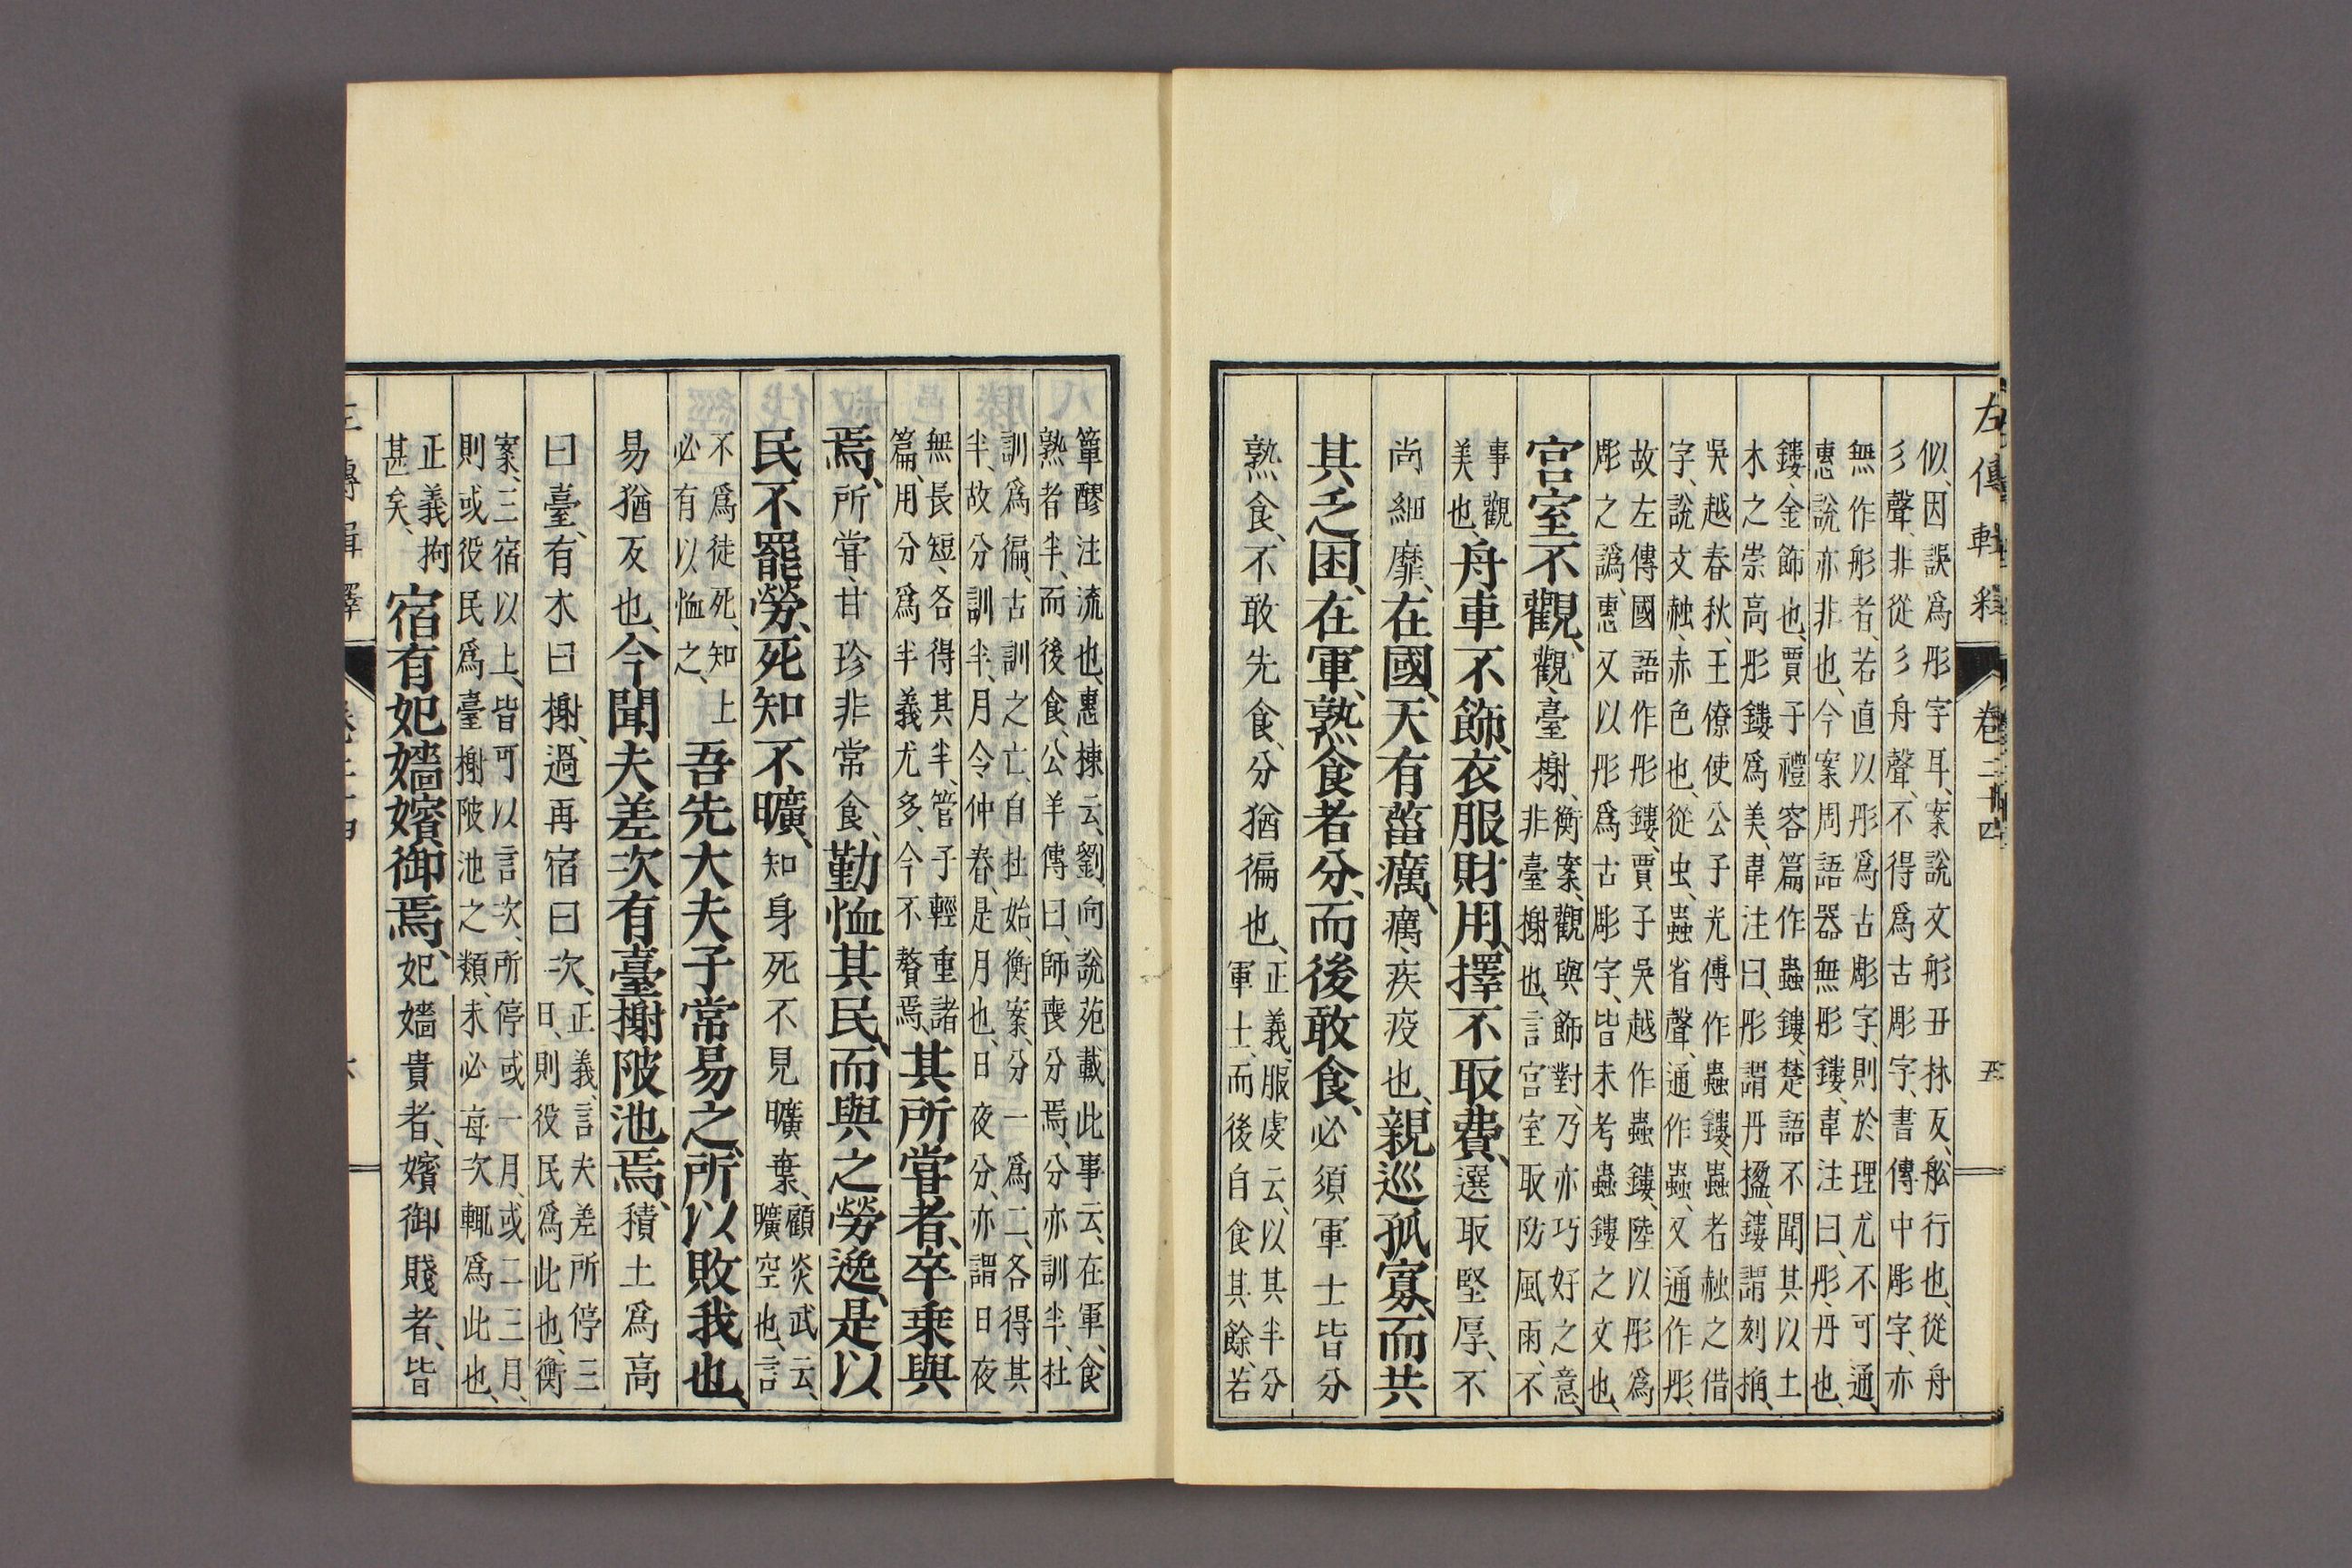 左傳輯釋 卷二十四 五
似、因誤爲彤字耳、案說文彤丑林反、舩行也、從舟
彡聲、非從彡舟聲、不得爲古彫字、書傳中彫字、亦
無作彤者、若直以彤爲古彫字、則於理尤不可通、
惠說亦非也、今案周語器無彤鏤、韋注曰、彤、丹也、
鏤、金飾也、賈子禮容篇作蟲鏤、楚語不聞其以土
木之崇高彤鏤爲美、韋注曰、彤謂丹楹、鏤謂刻桷、
吳越春秋、王僚使公子光傅作蟲鏤、蟲者赨之借
字、說文赨、赤色也、從虫、蟲省聲、通作蟲、又通作彤、
故左傳國語作彤鏤、賈子吳越作蟲鏤、陸以彤爲
彫之譌、惠又以彤爲古彫字、皆未考蟲鏤之文也、
宮室不觀、觀、臺榭、衡案、觀與飾對、乃亦巧好之意、
非臺榭也、言宮室取防風雨、不
事觀
美也、舟車不飾、衣服財用、擇不取費、選取堅厚、不
尚細靡、在國、天有菑癘、癘、疾疫也、親巡孤寡、而共
其乏困、在軍、熟食者分、而後敢食、必須軍士皆分
熟食、不敢先食、分猶徧也、正義、服虔云、以其半分
軍士、而後自食其餘、若
簞醪注流也、惠棟云、劉向說苑載此事云、在軍、食
熟者半、而後食、公羊傳曰、師喪分焉、分亦訓半、杜
訓爲徧、古訓之亡、自杜始、衡案、分一爲二、各得其
半、故分訓半、月令仲春、是月也、日夜分、亦謂日夜
無長短、各得其半、管子輕重諸
篇、用分爲半義尤多、今不贅焉、其所甞者、卒乘與
焉、所甞、甘珍非常食、勤恤其民、而與之勞逸、是以
民不罷勞、死知不曠、知身死不見曠棄、顧炎武云、
曠空也、言
不爲徒死、知上
必有以恤之、吾先大夫子常易之、所以敗我也、
易猶反也、今聞夫差次有臺榭陂池焉、積土爲高
曰臺、有木曰榭、過再宿曰次、正義、言夫差所停三
日、則役民爲此也、衡
案、三宿以上、皆可以言次、所停或一月、或二三月、
則或役民爲臺榭陂池之類、未必每次輒爲此也、
正義拘
甚矣、宿有妃嬙嬪御焉、妃嬙貴者、嬪御賤者、皆